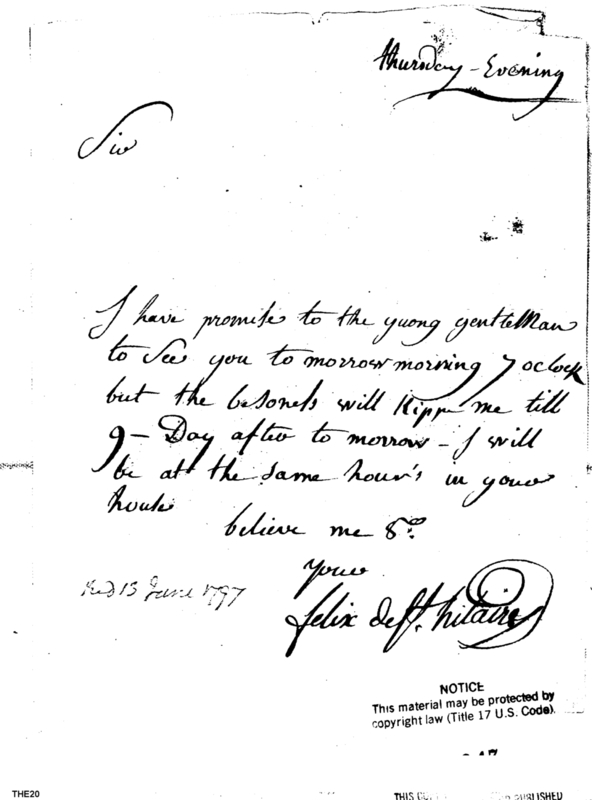 thursday - Evening
Sir
I have promise to the yuong gentelMan
to See you to morrow morning 7 oclock
but the besones will Kipp me till
9 - Day after to morrow - I will
be at the same hour's in your
house
believe me &c.
your
felix de St. hilaire
Red 13 June 1797
NOTICE
This material may be protected by
copyright law (Title 17 U.S. Code).
THE20
THIS PUBLISHED